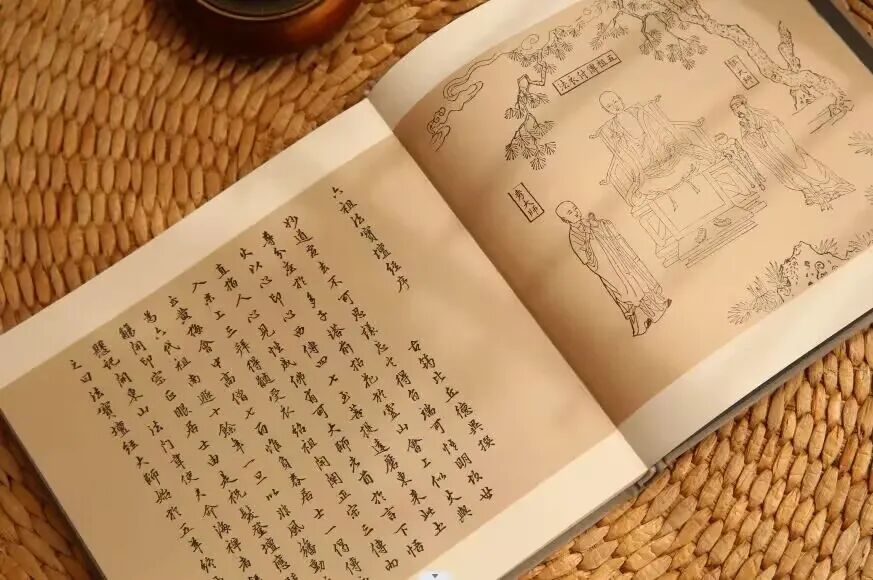 五祖傳付衣法
大師
秀大師
六祖法寶壇經序
古筠比丘德異撰
妙道虛玄不可思議忘言得旨端可悟明故世
尊分座於多子塔前拈花於靈山會上似火與
火以心印心西傳四七至菩提達磨東來此土
直指人心見性成佛有可大師首於言下悟
入末上三拜得髓受衣紹祖開闡正宗三傳而
至黃梅會中高僧七百惟負舂居士一偈傳
為六代祖南遯十餘年一旦以非風旛動
觸開印宗正眼居士由是祝髮登壇應
懸記開東山法門韋使君命海禪者
之曰法寶壇經大師始於五羊終